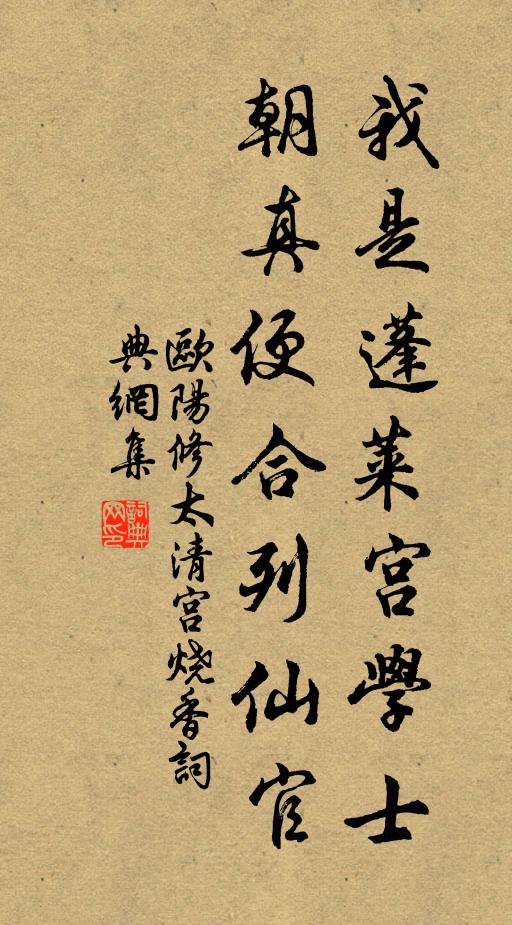 我是蓬莱宫學士
朝真便合列仙官
歐陽修太清宫烧香詞
典網集
詞典網印